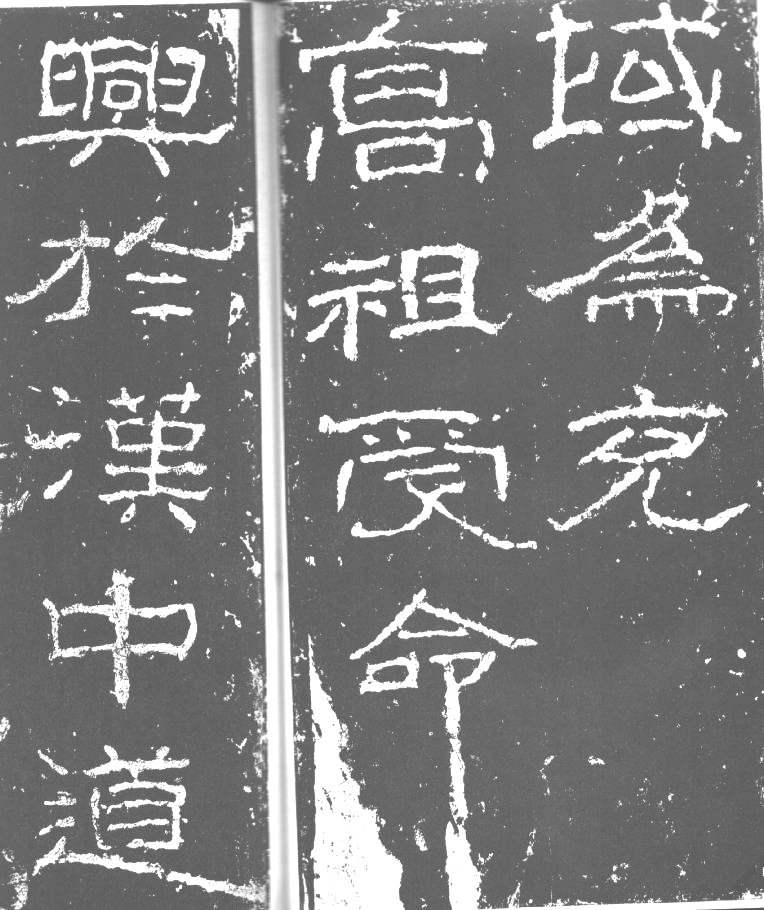 域爲充
高祖受命
興於漢中道